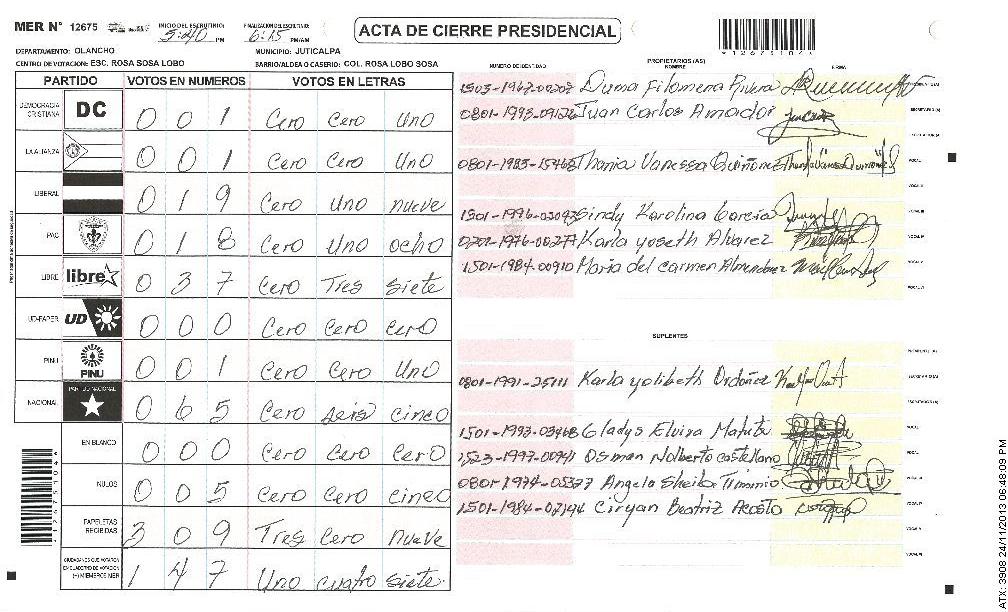 MER N° 12675
INICIO DEL ESCRUTINIO: 5:40 PM
FINALIZACION DEL ESCRUTINIO: 6:15 PM/AM
ACTA DE CIERRE PRESIDENCIAL
DEPARTAMENTO: OLANCHO
MUNICIPIO: JUTICALPA
CENTRO DE VOTACION: ESC. ROSA SOSA LOBO
BARRIO/ALDEA O CASERIO: COL. ROSA LOBO SOSA
PARTIDO VOTOS EN NUMEROS VOTOS EN LETRAS
DEMOCRACIA CRISTIANA DC 0 0 1 Cero Cero Uno
LA ALIANZA 0 0 1 Cero Cero Uno
LIBERAL 0 1 9 Cero Uno nueve
PAC 0 1 8 Cero Uno ocho
LIBRE libre 0 3 7 Cero Tres siete
UD-FAPER UD 0 0 0 Cero Cero Cero
PINU PINU 0 0 1 Cero Cero Uno
NACIONAL PARTIDO NACIONAL 0 6 5 Cero seis cinco
EN BLANCO 0 0 0 Cero Cero Cero
NULOS 0 0 5 Cero Cero cinco
PAPELETAS RECIBIDAS 3 0 9 Tres Cero nueve
CIUDADANOS QUE VOTARON EN EL CUADERNO DE VOTACION (+) MIEMBROS MER 1 4 7 Uno cuatro siete
NUMERO DE IDENTIDAD
PROPIETARIOS (AS)
NOMBRE
FIRMA
Duma Filomena Rivera
Juan Carlos Amador
Thania Vanessa Quiñonez
Sindy Karolina Garcia
Karla yoseth Alvarez
1501-1984-00910 Maria del carmen Almendarez
SUPLENTES
0801-1991-25111 Karla yolibeth Ordoñez
1501-1993-03468 Gladys Elvira Matute
Osman Nolberto Castellano
Angela Sheila Timinio
Ciryan Beatriz Acosta
ATX: 3908 24/11/2013 06:48:09 PM